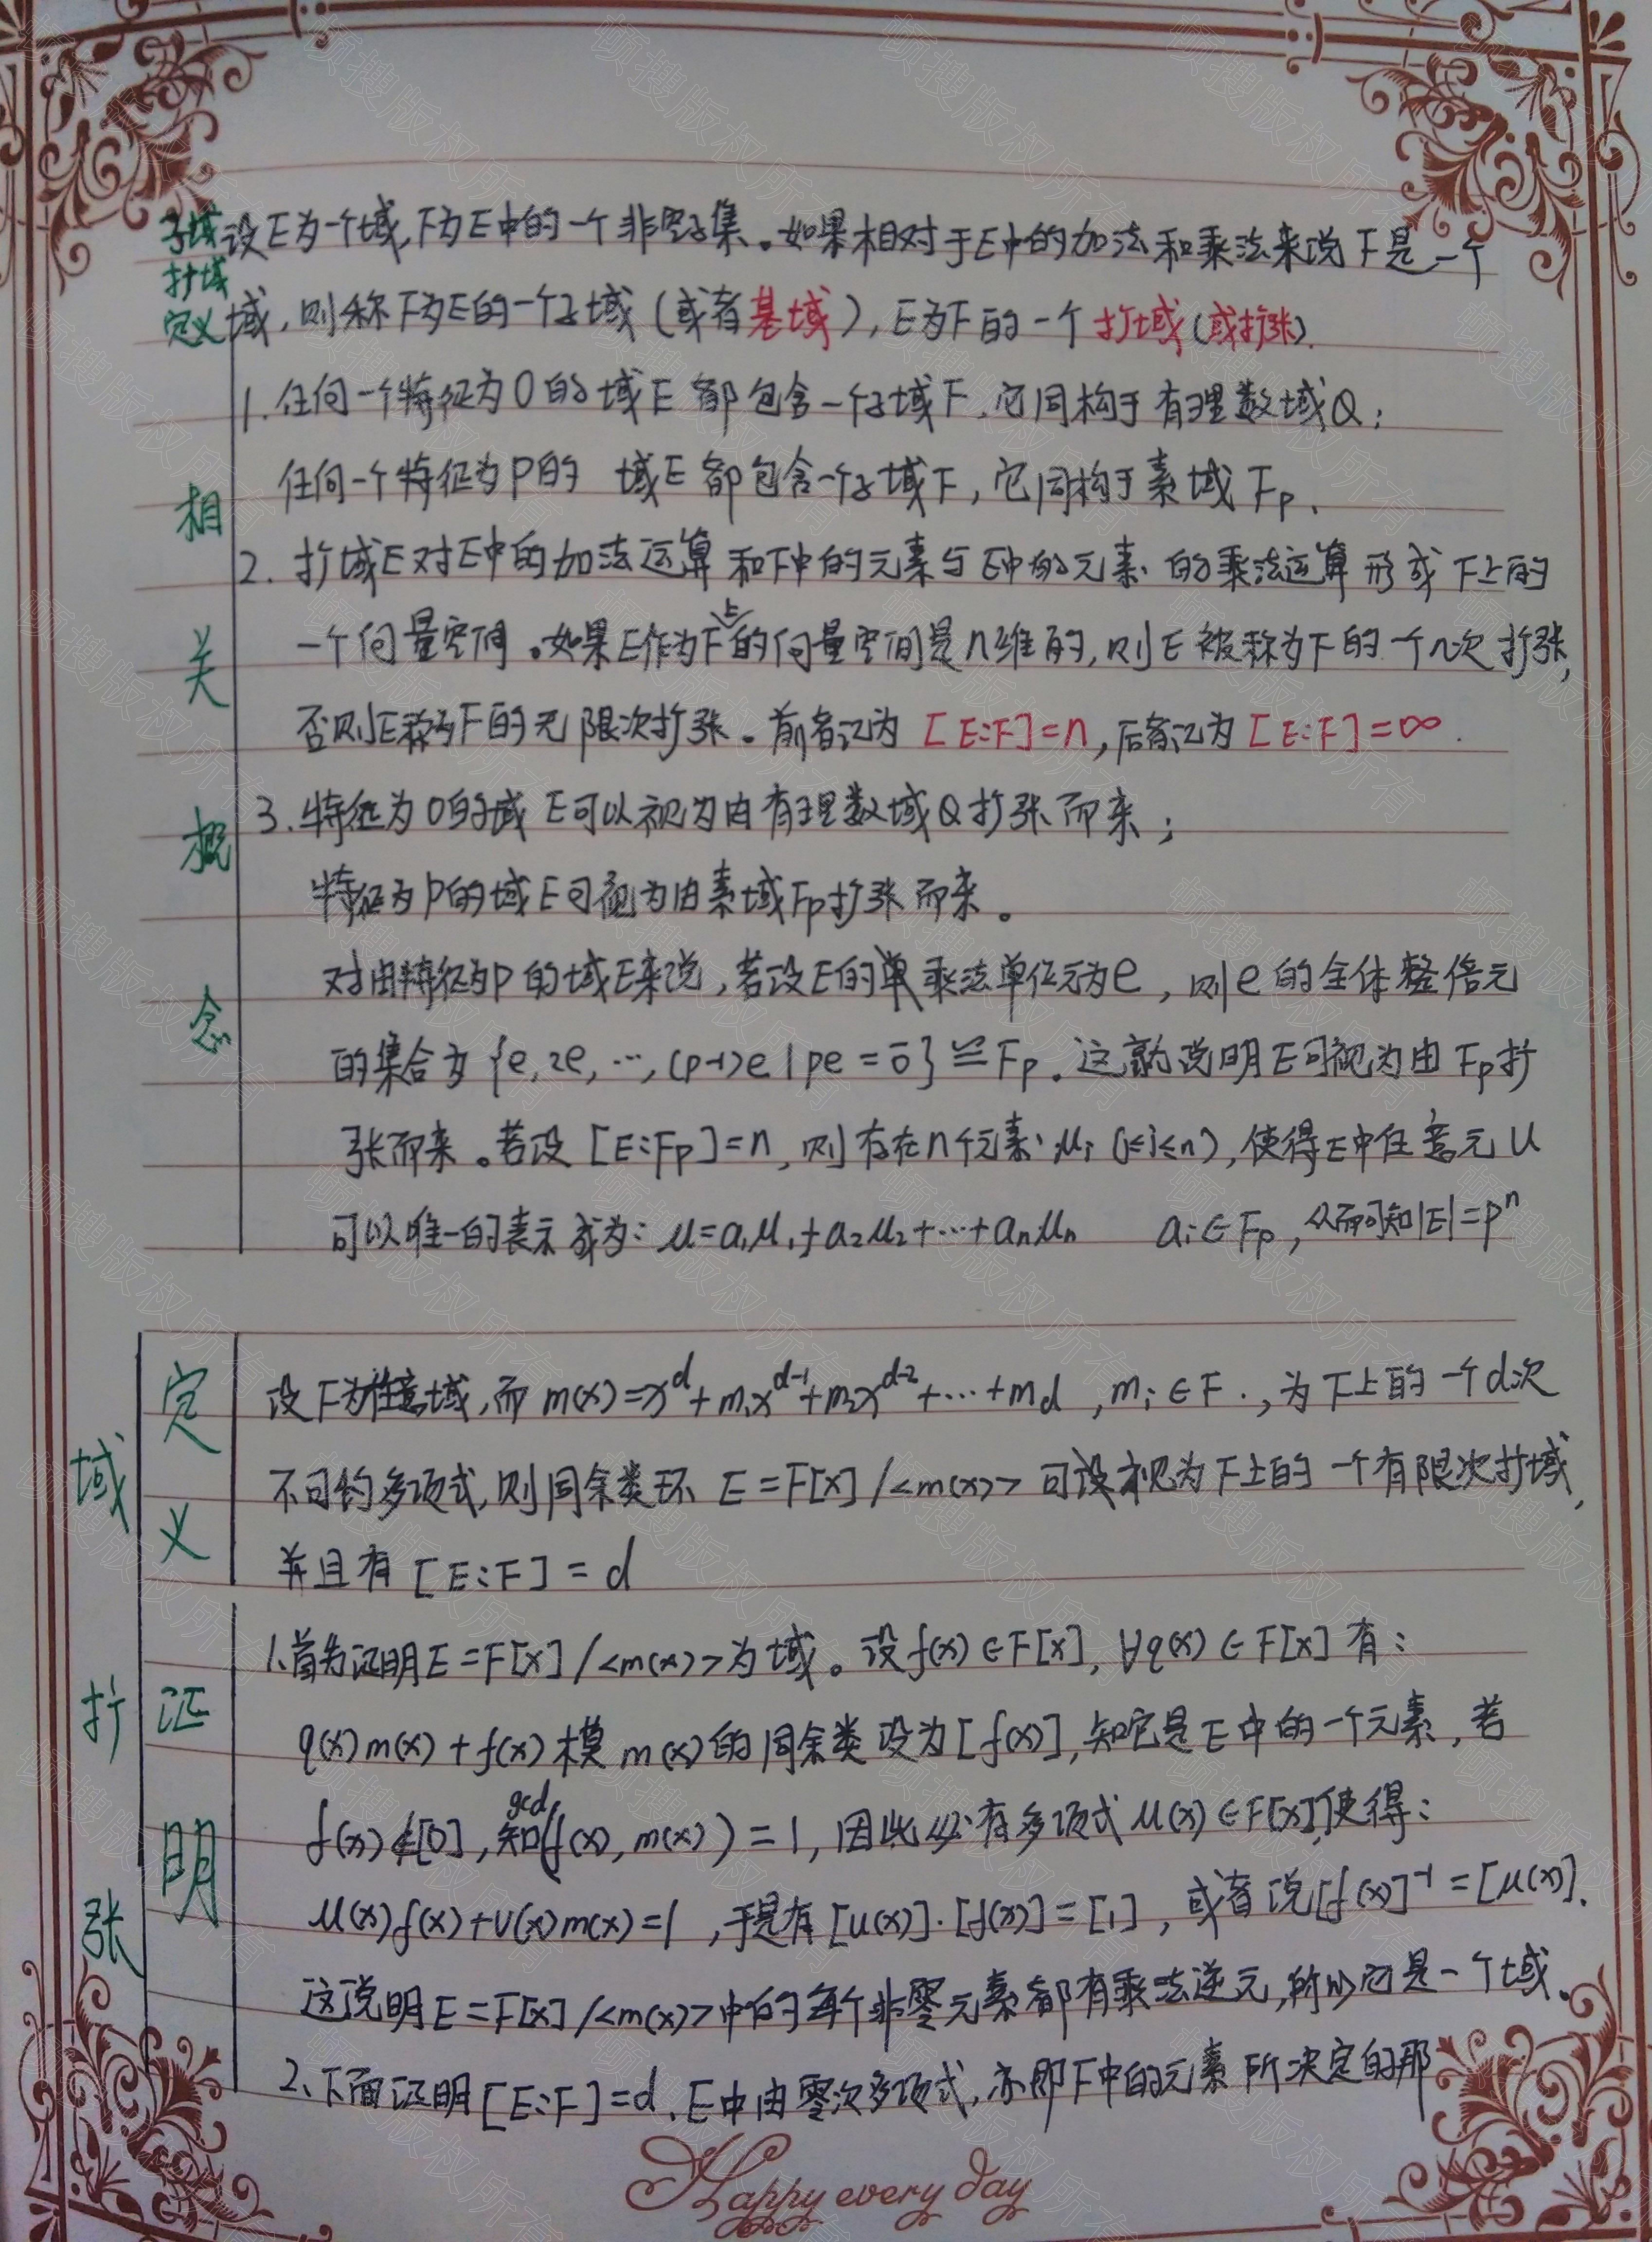 子域 设E为一个域,F为E中的一个非空子集。如果相对于E中的加法和乘法来说F是一个
扩域
定义 域,则称F为E的一个子域(或者基域),E为F的一个扩域(或扩张).
1.任何一个特征为0的域E都包含一个子域F,它同构于有理数域Q;
任何一个特征为P的 域E都包含一个子域F,它同构于素域Fp.
相
2.扩域E对E中的加法运算和F中的元素与E中的元素的乘法运算形成F上的
关
一个向量空间。如果E作为F上的向量空间是n维的,则E被称为F的一个n次扩张,
否则E称为F的无限次扩张。前者记为[E:F]=n,后者记为[E:F]=∞.
概
3.特征为0的域E可以视为由有理数域Q扩张而来;
特征为P的域E可视为由素域Fp扩张而来。
念
对由特征为P的域E来说,若设E的乘法单位元为e,则e的全体整倍元
的集合为{e,2e,…,(p-1)e|pe=0̄}≌Fp.这就说明E可视为由Fp扩
张而来。若设[E:Fp]=n,则存在n个元素μi(1≤i≤n),使得E中任意元u
可以唯一的表示成为:μ=a₁μ₁+a₂μ₂+…+aₙμₙ ai∈Fp,从而可知|E|=pⁿ
域扩张
定义
设F为任意域,而m(x)=x^d+m₁x^(d-1)+m₂x^(d-2)+…+m_d,mi∈F.,为F上的一个d次
不可约多项式,则同余类环E=F[x]/<m(x)>可视为F上的一个有限次扩域,
并且有[E:F]=d
证明
1.首先证明E=F[x]/<m(x)>为域。设f(x)∈F[x],∀q(x)∈F[x]有:
q(x)m(x)+f(x)模m(x)的同余类设为[f(x)],知它是E中的一个元素,若
f(x)∉[0],知gcd(f(x),m(x))=1,因此必有多项式μ(x)∈F[x],使得:
μ(x)f(x)+v(x)m(x)=1,于是有[u(x)]·[f(x)]=[1],或者说[f(x)]⁻¹=[μ(x)].
这说明E=F[x]/<m(x)>中的每个非零元素都有乘法逆元,所以它是一个域.
2、下面证明[E:F]=d.E中由零次多项式,亦即F中的元素所决定的那
Happy every day
硕搜版权所有